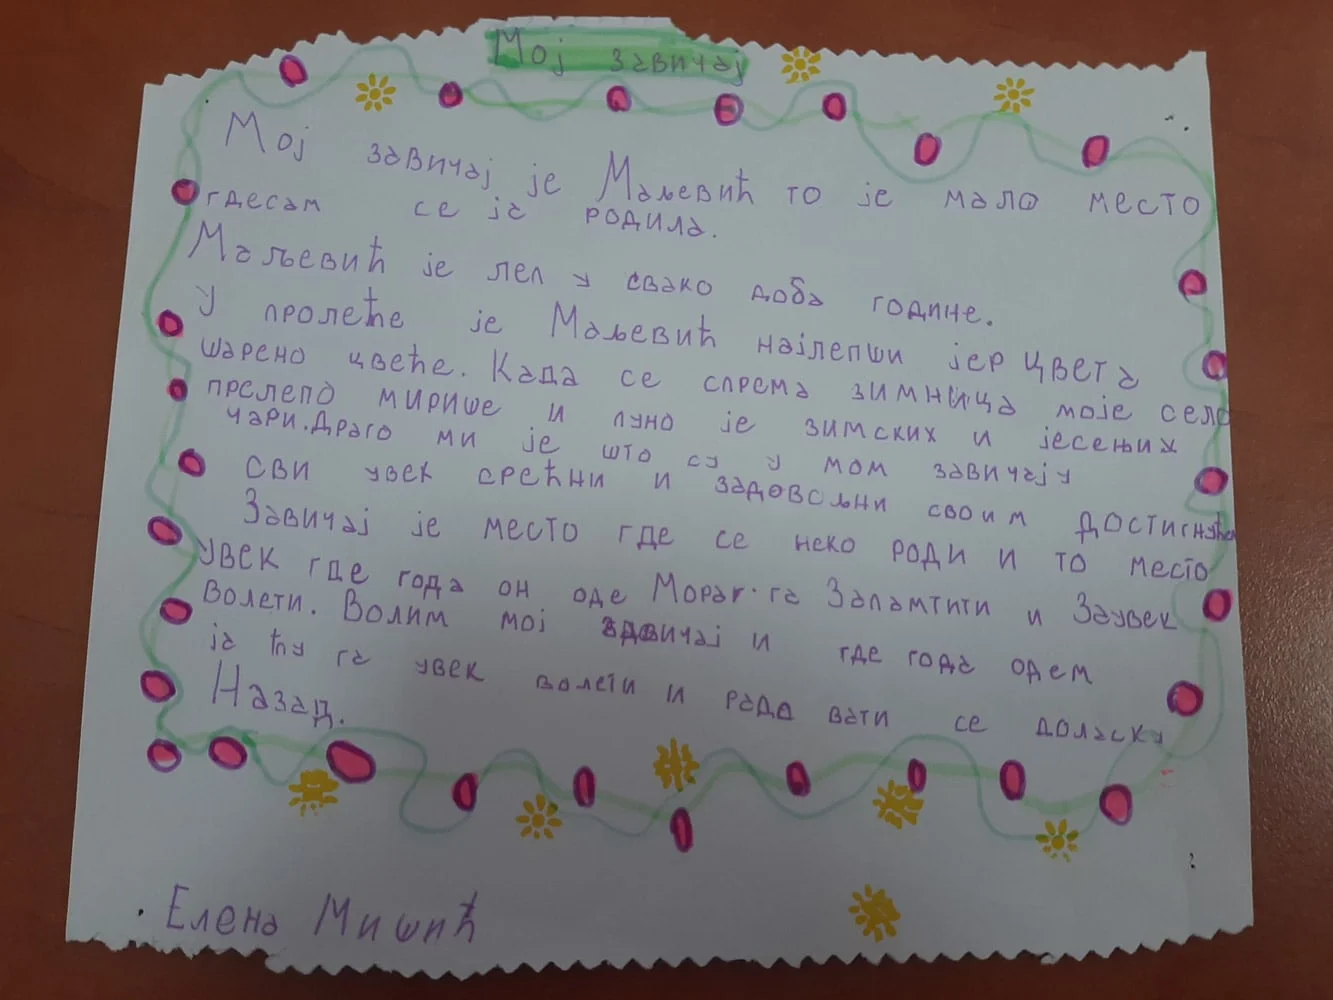 Мој завичај
Мој завичај је Маљевић то је мало место
гдесам се ја родила.
Маљевић је леп у свако доба године.
У пролеће је Маљевић најлепши јер цвета
шарено цвеће. Када се спрема зимница моје село
прелепо мирише и пуно је зимских и јесењих
чари. Драго ми је што су у мом завичају
сви увек срећни и задовољни своим
Завичај је место где се неко роди и то место
увек где года он оде Мора га Запамтити и Заувек
волети. Волим мој завичај и где года одем
ја ћу га увек волети и радо вати се доласку
Назад.
Елена Мишић